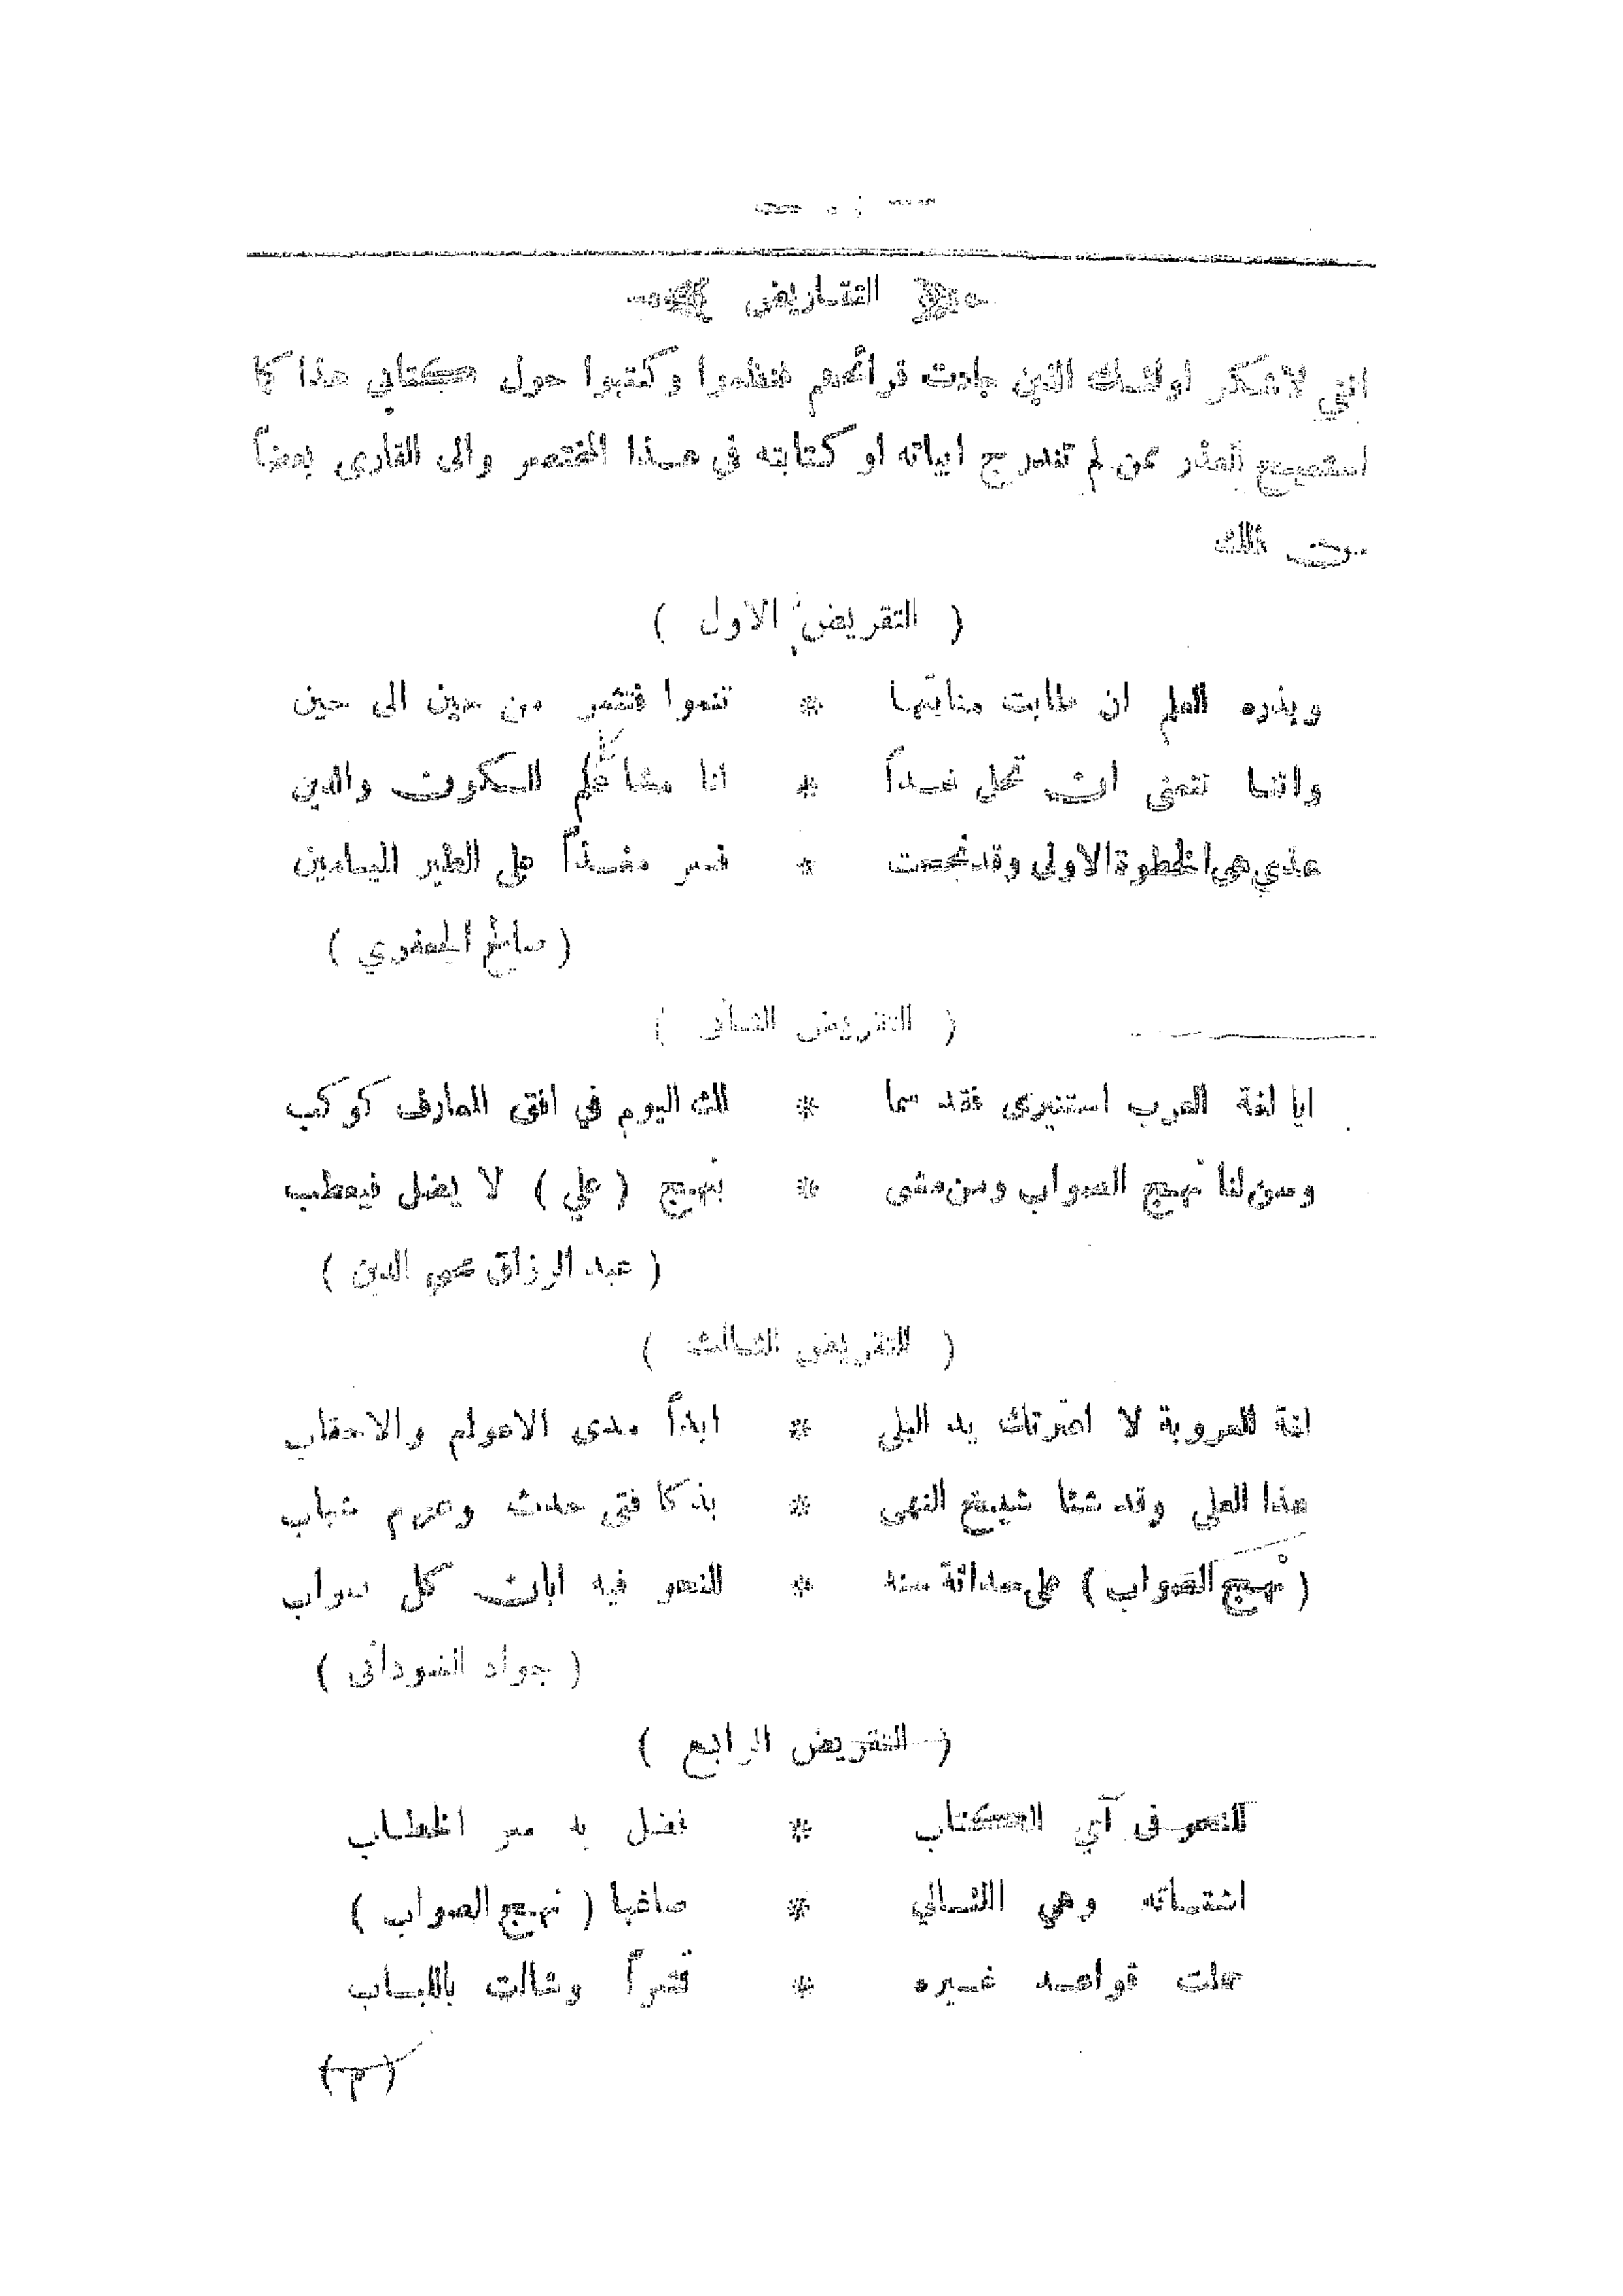 التقاريض
انني لأشكر اولئك الذين جادت قرائحهم فنظموا وكتبوا حول كتابي هذا كما
استميح العذر ممن لم تندرج ابياته او كتابته في هذا المختصر والى القارى بعضاً
من ذلك
( التقريض الاول )
وبذره العلم ان طابت منابتها * تنموا فتثمر من حين الى حين
واننا نتمنى ان تحل غداً * انا مشا كلم الكون والدين
هذي هي الخطوة الاولى وقد نجحت * فسر مغذاً على الطير الميامين
( صالح الجعفري )
( التقريض الثاني )
ايا لغة العرب استنيرى فقد سما * لك اليوم في افق المعارف كوكب
ومن لنا نهج الصواب ومن مشى * بنهج ( علي ) لا يضل فيعطب
( عبد الرزاق محي الدين )
( التقريض الثالث )
لغة العروبة لا اعترتك يد البلى * ابداً مدى الاعوام والاحقاب
هذا العلي وقد شئا النهى * بذكا فتى حدث وعزم شباب
( نهج الصواب ) على حداثة سنه * للنحو فيه ابان كل صواب
( جواد السوداني )
( التقريض الرابع )
للنحو فى آي الكتاب * فضل به سر الخطاب
وهي اللئالي * صاغها ( نهج الصواب )
حملت قواعد غيره * قشراً وشالت باللباب
( م )